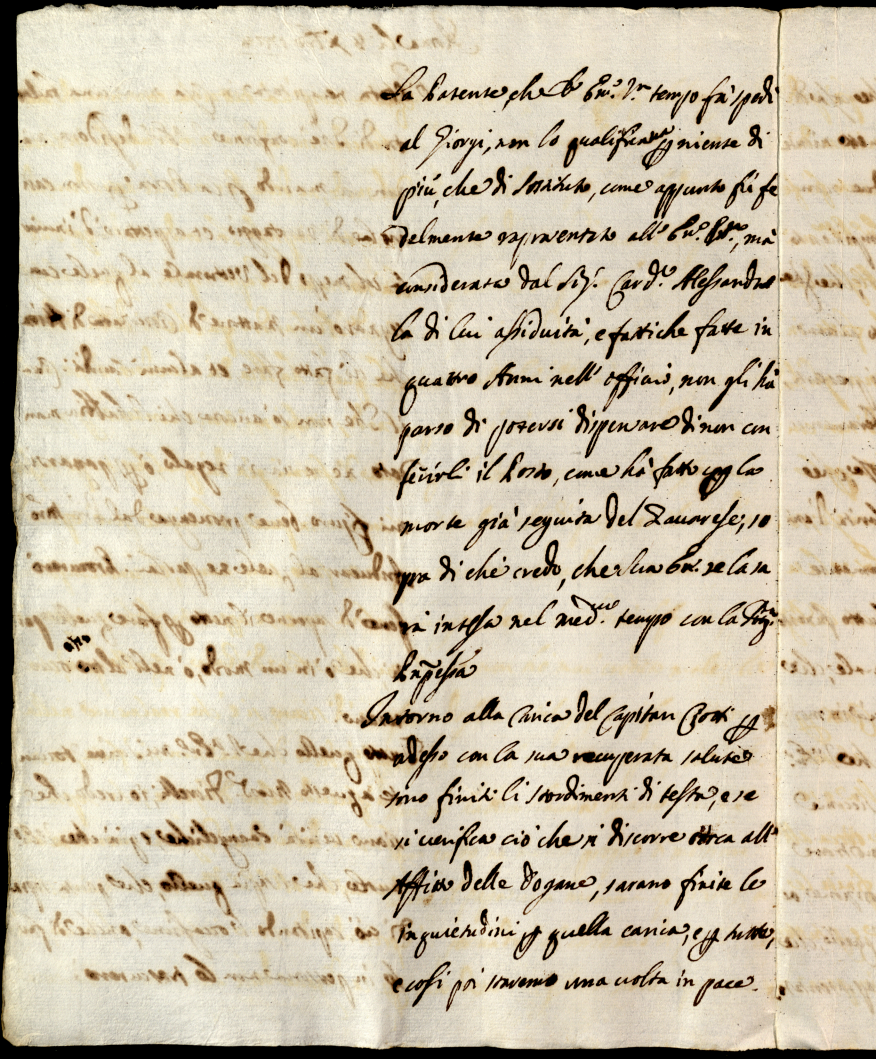 La Patente che l' Em.º V.ro tempo fà spedì
al Giorgi, non lo qualificava niente di
più, che di Sostituto, come appunto fù fe
delmente rapresentato all' Em.º, mà
considerata dal Sig.r Card.le Alessandro
la di lui assiduità, e fattiche fatte in
quattro Anni nell' officio, non gli hà
parso di potersi dispensare di non con
ferirli il Posto, come hà fatto p la
morte già seguita del Zavarese; so
pra di chè credo, che Sua Em. se la sa
rà intesa nel med.mo tempo con la Prin
cipessa
Intorno alla carica del Capitan Conti p
adesso con la sua recuperata salute
sono finiti li stordimenti di testa, e se
si verifica ciò che si discorre circa all'
Affitto delle Dogane, sarano finite le
inquietudini p quella carica, e p tutte,
e così poi staremo una volta in pace.